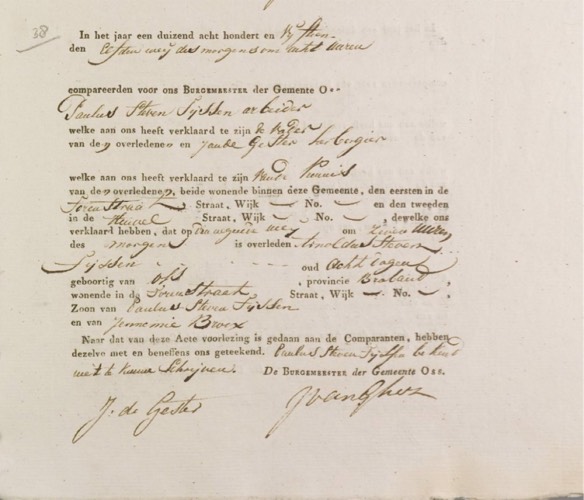 38
In het jaar een duizend acht hondert en Vijftien
den Elfden meij des morgens om acht uuren
compareerden voor ons BURGEMEESTER der Gemeente O
Paulus Steven Sijssen arbeider
welke aan ons heeft verklaard te zijn de Vader
van de n overledene n en Jan de Gester herbergier
welke aan ons heeft verklaard te zijn Kennis
van de n overledene n, beide wonende binnen deze Gemeente, den eersten in de
Toren Straat Straat, Wijk — No. — en den tweeden
in de Heuvel Straat, Wijk — No. —, dewelke ons
verklaard hebben, dat op den meij om Zeven uuren
des morgens is overleden Arnoldus Steven
Sijssen oud acht dagen
geboortig van Oss , provincie Braband,
wonende in de Toren Straat Straat, Wijk — No. —,
Zoon van Paulus Steven Sijssen
en van Jennemie Broex
Naar dat van deze Acte voorlezing is gedaan aan de Comparanten, hebben
dezelve met en beneffens ons geteekend. Paulus Steven Sijssen
niet te kunnen Schrijven. De BURGEMEESTER der Gemeente Oss.
J. de Gester